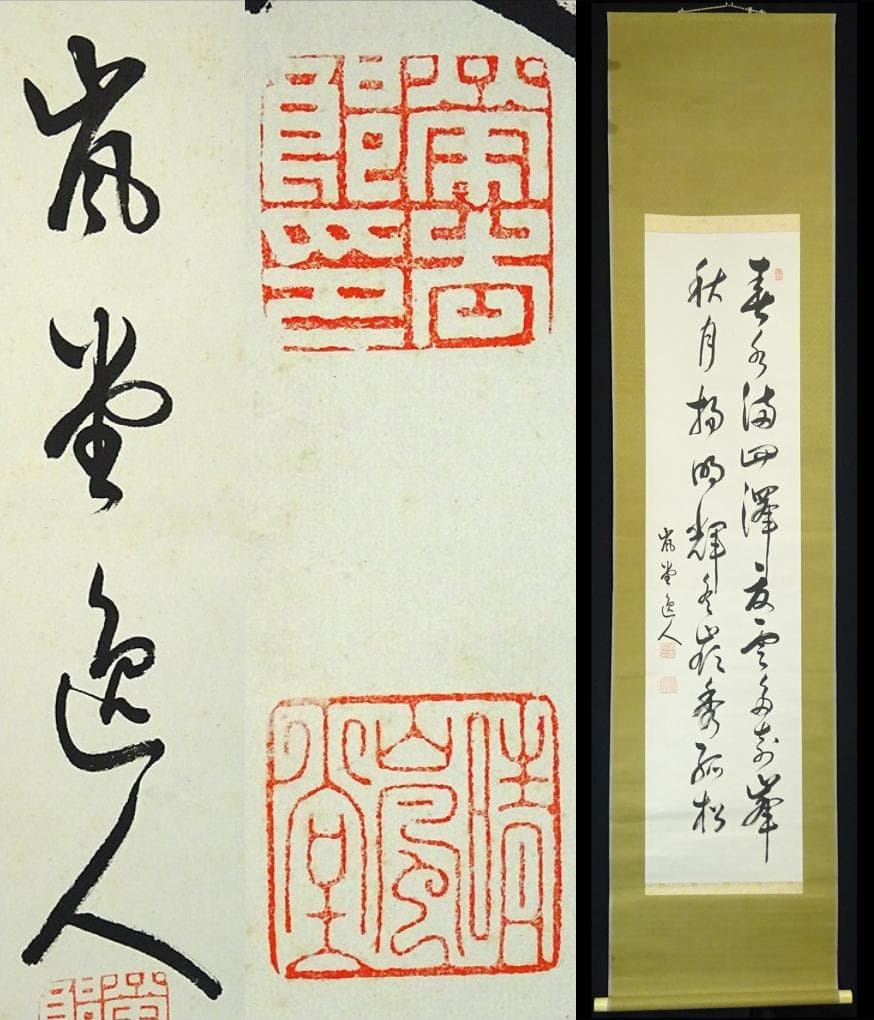 嵐堂逸人
清嵐堂
春水満四澤夏雲多奇峯
秋月揚明輝冬嶺秀孤松
嵐堂逸人